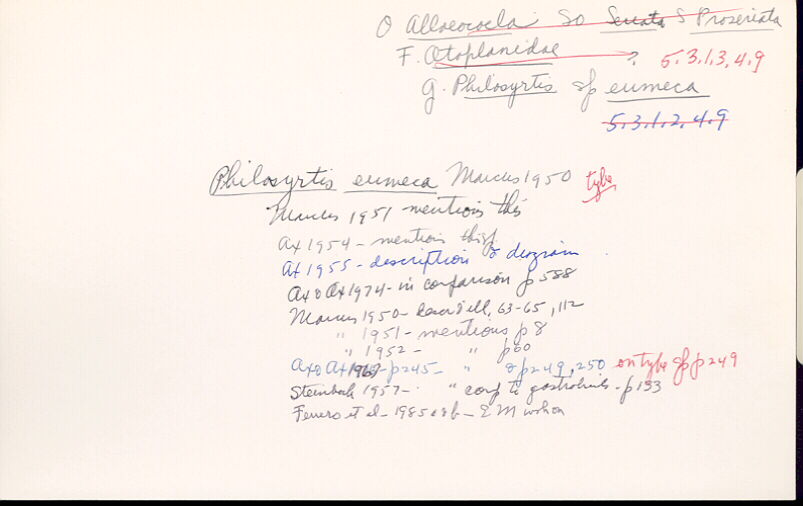 O Alloeocoela SO Seriata S Proseriata
F. Otoplanidae ? 5.3.1.3.4.9
G. Philosyrtis sp eumeca
5.3.1.2.4.9
Philosyrtis eumeca Marcus 1950 type
Marcus 1951 mentions this
Ax 1954 - mention this
Ax 1955 - description & diagram
Ax & Ax 1974 - in comparison p 588
Marcus 1950 - & ill, 63-65, 112
" 1951 - mentions p 8
" 1952 - " p 60
Ax & Ax 1967 - p 245 - " & p 249, 250 on type sp p 249
Steinbock 1957 - " comp to - p 133
et al - 1985 - EM